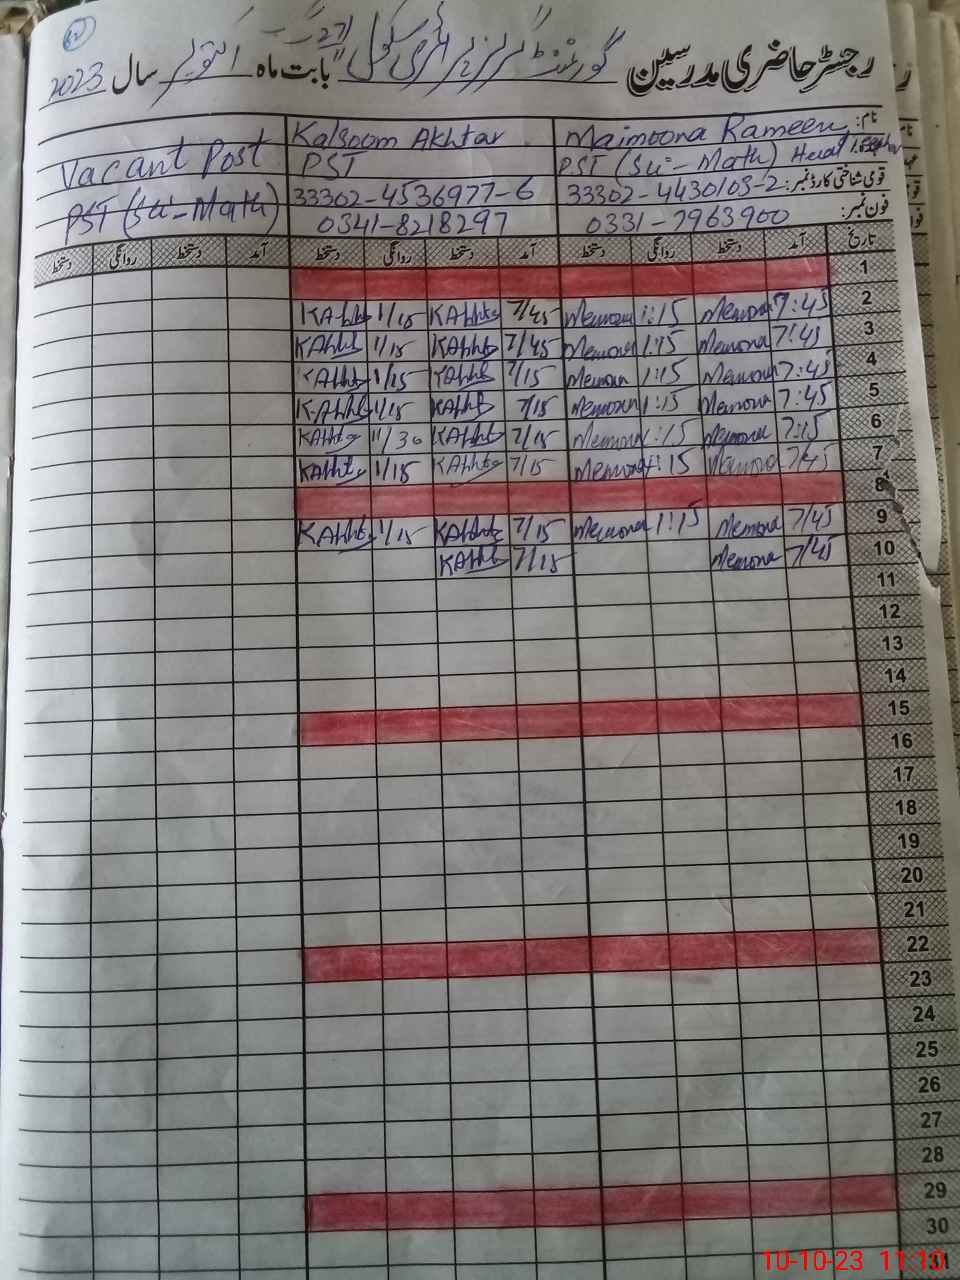 رجسٹر حاضری مدرسین گورنمنٹ گرلز پرائمری سکول بابت ماہ اکتوبر سال 2023
نام: Maimoona Rameen Kalsoom Akhtar
PST (Su:- Math) Head PST Vacant Post
قومی شناختی کارڈ نمبر: 33302-4430103-2 33302-4536977-6 PST (Su:- Math)
فون نمبر: 0331-7963900 0341-8218297
تاریخ آمد دستخط روانگی دستخط آمد دستخط روانگی دستخط آمد دستخط روانگی دستخط
1
2 7:45 Memona 1:15 Memona 7/45 KAkhtr 1/15 KAkhtr
3 7:45 Memona 1:15 Memona 7/45 KAkhtr 1/15 KAkhtr
4 7:45 Memona 1:15 Memona 7/15 KAkhtr 1/15 KAkhtr
5 7:45 Memona 1:15 Memona 7/15 KAkhtr 1/15 KAkhtr
6 7:15 Memona 1:15 Memona 7/15 KAkhtr 11/30 KAkhtr
7 7/45 Memona 1:15 Memona 7/15 KAkhtr 1/15 KAkhtr
8
9 7/45 Memona 1:15 Memona 7/15 KAkhtr 1/15 KAkhtr
10 7/45 Memona 7/15 KAkhtr
11
12
13
14
15
16
17
18
19
20
21
22
23
24
25
26
27
28
29
30
31
10-10-23 11:10